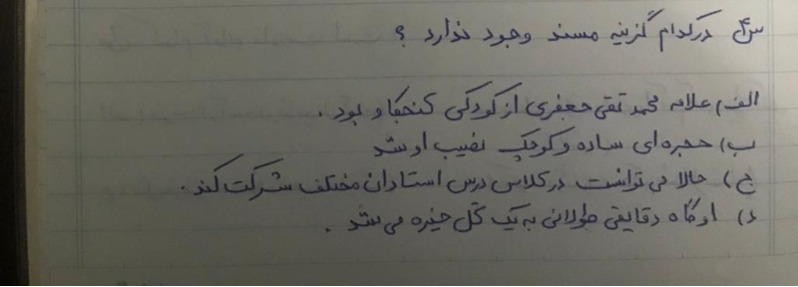 س۴ در کدام گزینه مسند وجود ندارد ؟
الف) علامه محمد تقی جعفری از کودکی کنجکاو بود .
ب) حجره ای ساده و کوچک نصیب او شد
ج) حالا می توانست در کلاس درس استادان مختلف شرکت کند .
د) او گاه دقایقی طولانی به یک گل خیره می شد .